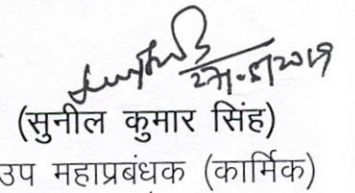 27.5/2019
(सुनील कुमार सिंह)
उप महाप्रबंधक (कार्मिक)